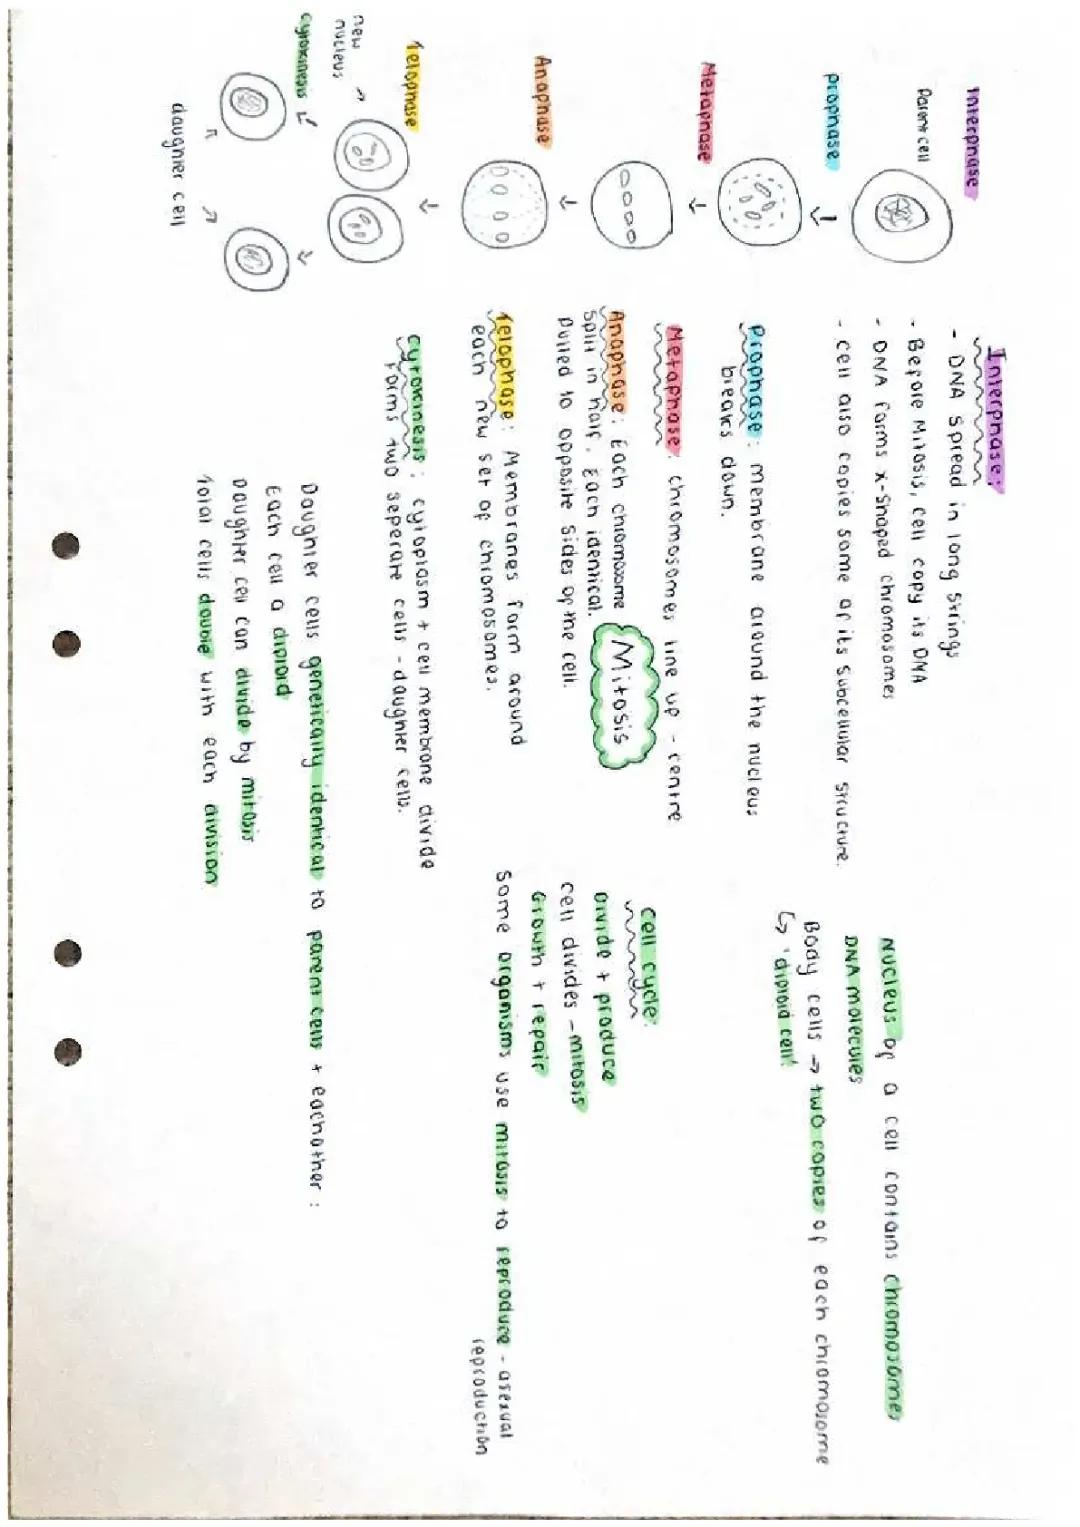 Interphase
Parent cell
prophase
Metaphase
Anaphase
Telophase
new
nucleus
cytokinesis
daughter cell
Interphase:
- DNA spread in long strings
- Before Mitosis, cell copy its DNA
- DNA forms x-shaped chromosomes
- cell also copies some of its subcellular structure.
Prophase: membrane around the nucleus
breaks down.
Metaphase: chromosomes line up - centre
Anaphase: Each chromosome
split in half, Each identical.
Pulled to opposite sides of the cell.
Mitosis
Telophase: Membranes form around
each new set of chromosomes.
cytokinesis: cytoplasm + cell membrane divide
forms two seperate cells - daughter cells.
Daughter cells genetically identical to parent cells + eachother:
Each cell a diploid
Daughter cell can divide by mitosis
Total cells double with each division
Nucleus of a cell contains chromosomes
DNA molecules
Body cells → two copies of each chromosome
↳ 'diploid cell'
Cell cycle:
Divide + produce
cell divides - mitosis
Growth + repair
Some organisms use mitosis to reproduce - asexual
reproduction